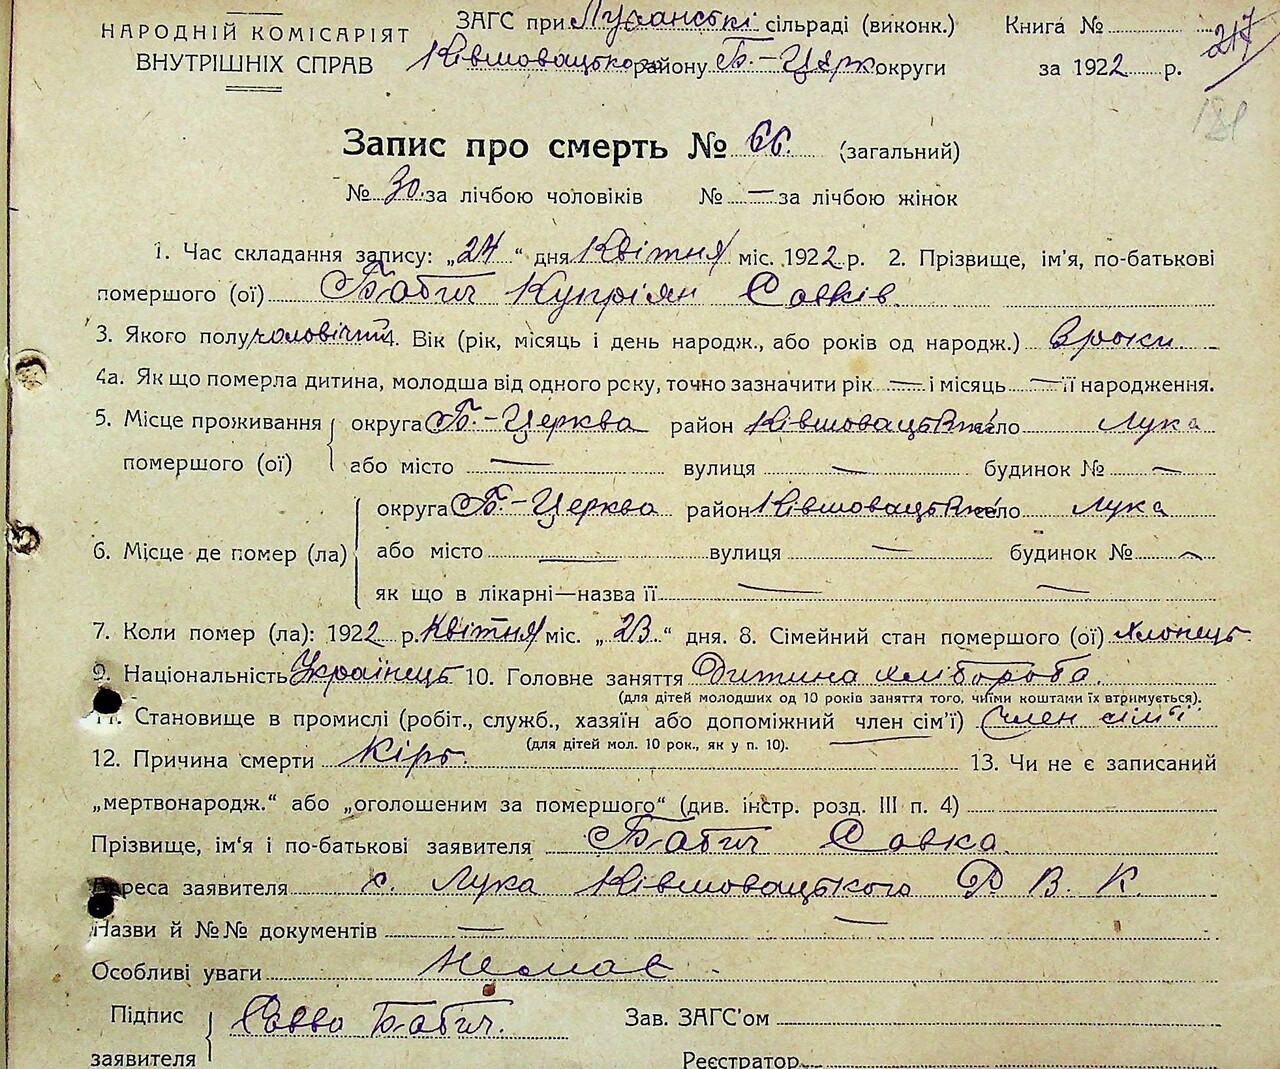 НАРОДНІЙ КОМІСАРІЯТ
ВНУТРІШНІХ СПРАВ
ЗАГС при Луканські сільраді (виконк.)
Ківшовацького району Б.-Церк округи
Книга №
за 1922 р.
217
181
Запис про смерть № 66. (загальний)
№ 30. за лічбою чоловіків № — за лічбою жінок
1. Час складання запису: „24“ дня Квітня міс. 1922 р. 2. Прізвище, ім'я, по-батькові
помершого (ої) Бабич Купріян Савків.
3. Якого полу чоловічий 4. Вік (рік, місяць і день народж., або років од народж.) роки
4а. Як що померла дитина, молодша від одного року, точно зазначити рік — і місяць — її народження.
5. Місце проживання помершого (ої)
округа Б.-Церква район Ківшовацьке село Лука
або місто — вулиця — будинок № —
6. Місце де помер (ла)
округа Б.-Церква район Ківшовацьке село Лука
або місто — вулиця — будинок № —
як що в лікарні—назва її — —
7. Коли помер (ла): 1922 р. Квітня міс. „23“ дня. 8. Сімейний стан помершого (ої) хлопець
9. Національність Українець 10. Головне заняття Дитина хлібороба.
(для дітей молодших од 10 років заняття того, чиїми коштами їх втримується).
11. Становище в промислі (робіт., служб., хазяїн або допоміжний член сім'ї) Член сім'ї
(для дітей мол. 10 рок., як у п. 10). —
12. Причина смерти Кірь. 13. Чи не є записаний
„мертвонародж.“ або „оголошеним за помершого“ (див. інстр. розд. III п. 4)
Прізвище, ім'я і по-батькові заявителя Бабич Савка.
Адреса заявителя с. Лука Ківшовацького Р. В. К.
Назви й №№ документів — —
Особливі уваги Немає
Підпис заявителя Савва Бабич.
Зав. ЗАГС'ом
Реєстратор